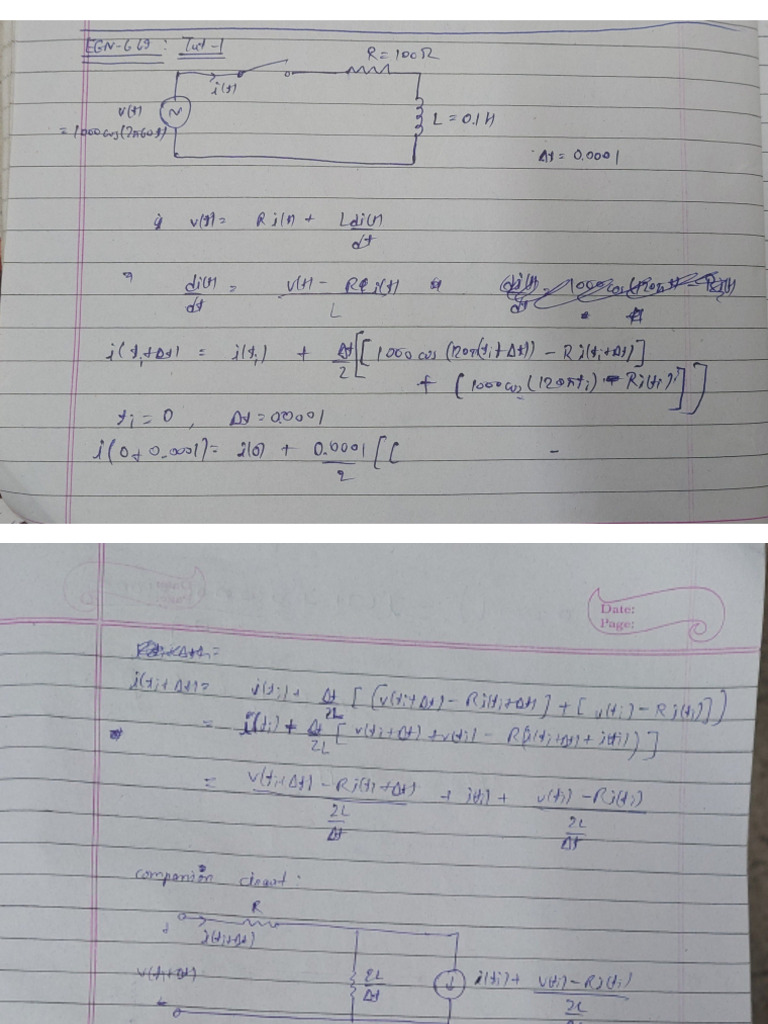 EGN-669 : Tut-1
R = 100Ω
i(t)
v(t)
= 1000cos(2π60t)
L = 0.1H
Δt = 0.0001
v(t) = Ri(t) + Ldi(t)
dt
di(t) = v(t) - R i(t)
dt L
i(ti+Δt) = i(ti) + Δt/2 [[1000cos(120π(ti+Δt)) - Ri(ti+Δt)]
+ [1000cos(120πti) - Ri(ti)]]
ti = 0, Δt = 0.0001
i(0+0.0001) = i(0) + 0.0001/2 [[
Date:
Page:
i(ti+Δt) = i(ti) + Δt/2L [[v(ti+Δt) - Ri(ti+Δt)] + [v(ti) - Ri(ti)]]
= i(ti) + Δt/2L [v(ti+Δt) + v(ti) - R(i(ti+Δt) + i(ti))]
= v(ti+Δt) - Ri(ti+Δt) + i(ti) + v(ti) - Ri(ti)
2L/Δt 2L/Δt
companion circuit:
R
+
i(ti+Δt)
v(ti+Δt)
2L/Δt
i(ti) + v(ti) - Ri(ti)
2L
Δt